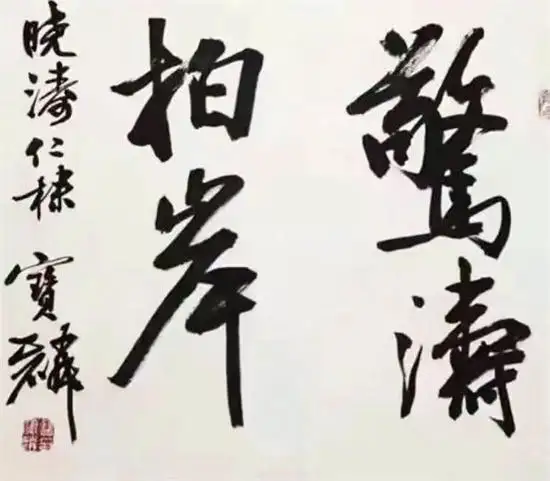 驚濤
拍岸
晓濤仁棣 寶